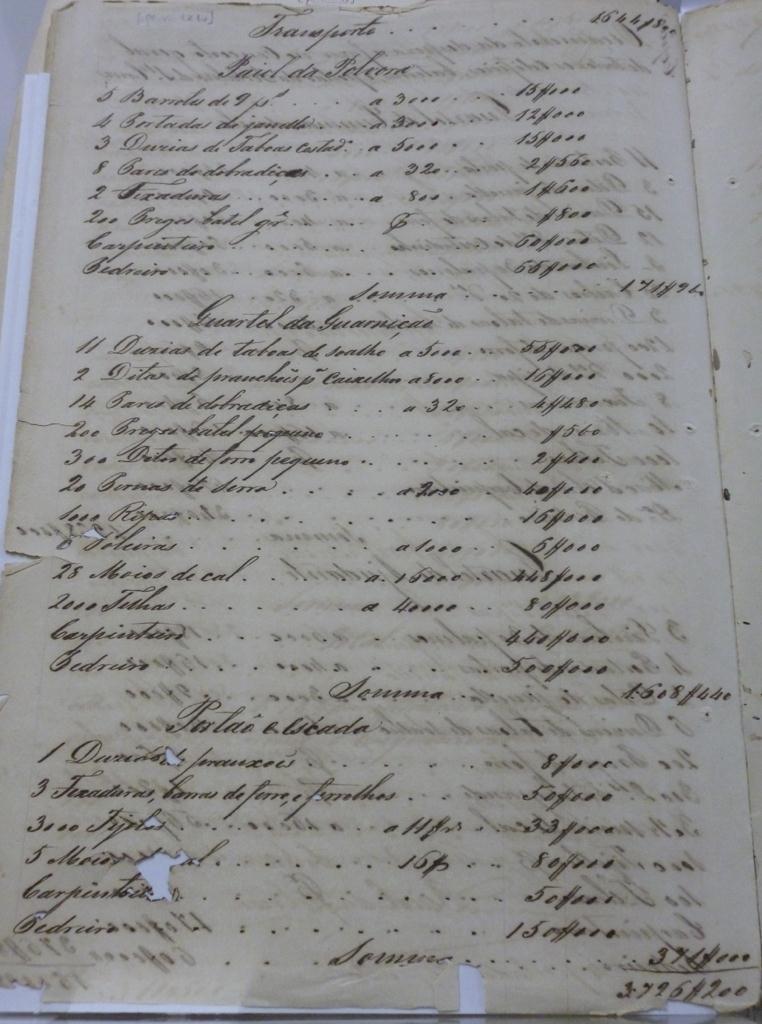 Transporte . . . 1644$800
Paiol da Polvora
5 Barrotes de 9 p.s . . . a 3000 . . 15$000
4 Portadas de janella . . a 3000 . . 12$000
3 Duzias de Taboas costad.o a 5000 . . 15$000
8 Pares de dobradiças . . a 320 . . 2$560
2 Fixaduras . . . a 800 . . 1$600
200 Pregos batel gr.e . . $ . . $800
Carpinteiro . . . 60$000
Pedreiro . . . 65$000
Somma . . . 171$960
Quartel da Guarnição
11 Duzias de taboas de soalho a 5000 . . 55$000
2 Ditas de pranchões p.a Caixilhos a 8000 . . 16$000
14 Pares de dobradiças . . a 320 . . 4$480
200 Pregos batel pequeno . . . $560
300 Ditos de forro pequeno . . . 2$400
20 Pernas de serra . . . a 2000 . . 40$000
1000 Ripas . . . 16$000
6 Soleiras . . . a 1000 . . 6$000
28 Moios de cal . . . a 16000 . . 448$000
2000 Telhas . . . a 40000 . . 80$000
Carpinteiro . . . 440$000
Pedreiro . . . 500$000
Somma . . . 1:608$440
Portaõ e escada
1 Duzia de pranxões . . . 8$000
3 Fixaduras, barras de ferro, e ferrolhos . . 50$000
3000 Tijolos . . . a 11$rs . . 33$000
5 Moios de cal . . . 16$ . . 80$000
Carpinteiro . . . 50$000
Pedreiro . . . 150$000
Somma . . . 371$000
3:796$200